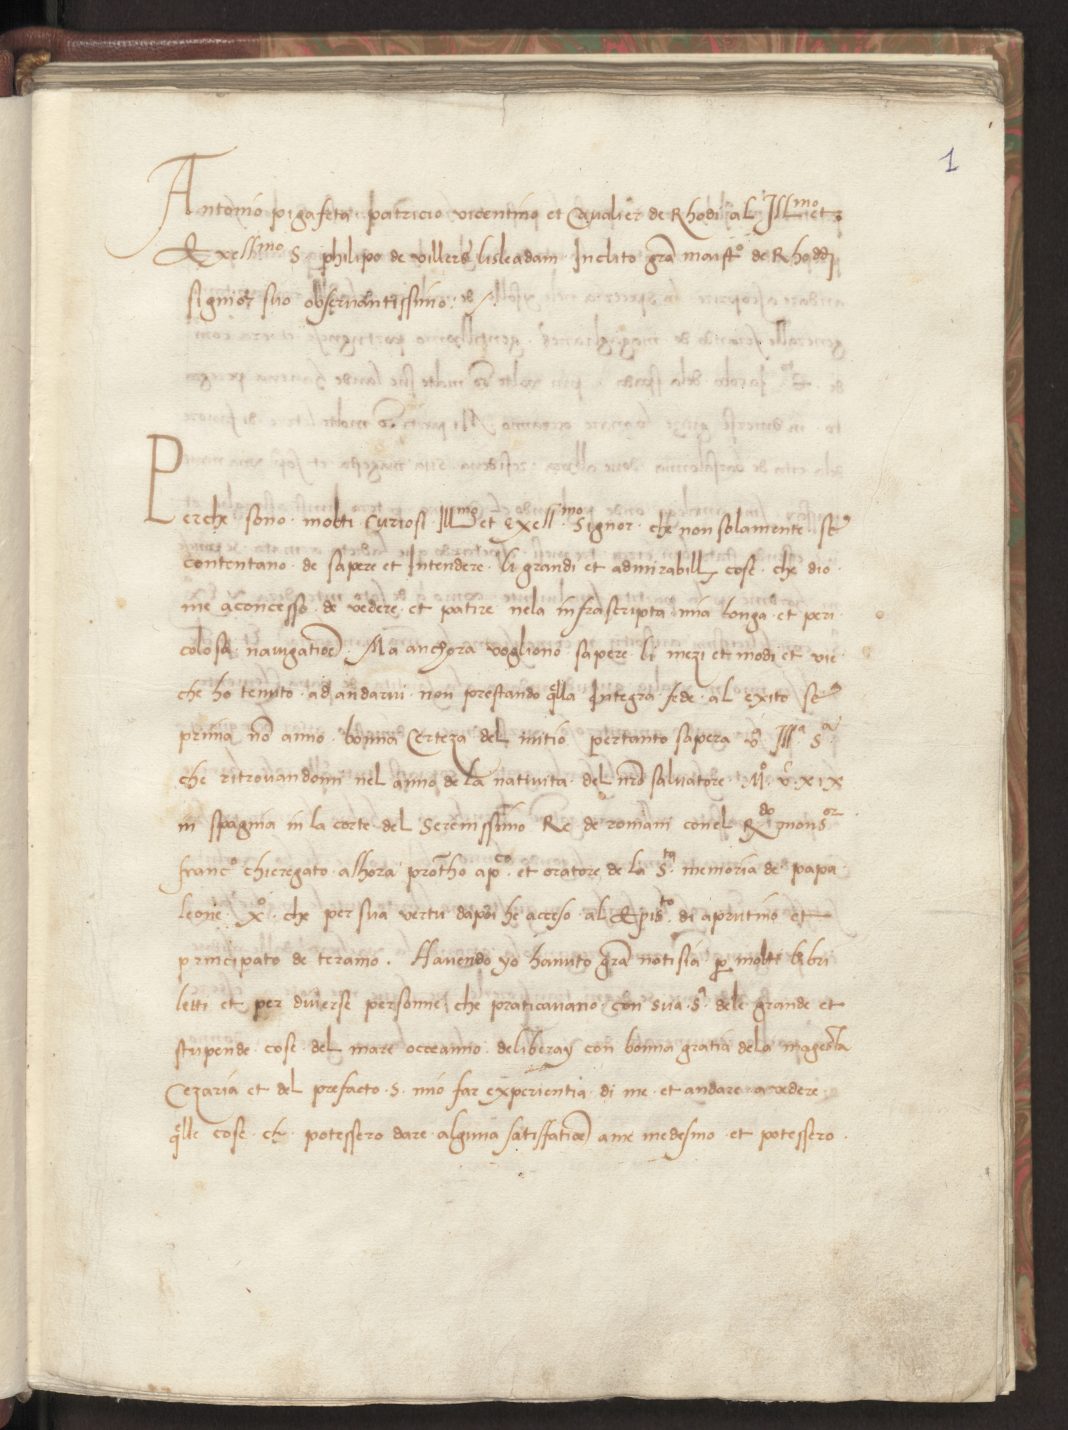 1
Antonio pigafeta patricio vicentino et Caualier de Rhodi aL JllLmo et
Exellmo S. philipo de villers lisleadam Inclito grã maistº de Rhoddj
signior suo obseruantissimo:
Perche sono molti curiosi Jllmo et Exellmo Signor che non solamente se
contentano de sapere et Intendere li grandi et admirabillj cose che dio
me a concesso de vedere et patire nela infrascripta mia longa et peri
colosa nauigatiõe Ma anchora vogliono sapere li mezi et modi et vie
che ho tenuto ad andarui non prestando q̃lla Integra fede al exito se
prima nõ anno bonna Certeza del initio pertanto sapera v̄ Illª Sª
che ritrovandomi nel anno de la natiuita del nr̃o saluatore Mº v̊ xix
in spagnia in la corte del Serenissimo Re de romani con el Rdo monsor
francº chieregato alhora protho apco. et oratore de la Sta memoria de papa
leone xº che per sua vertu dapoi he acceso al Episto di aprutino et
principato de teramo. Hauendo yo hauuto grã notisia p molti libri
letti et per diuerse personne che praticauano con sua Sª dele grande et
stupende cose del mare occeanno deliberay con bonna gratia dela magesta
Cezaria et del prefacto S. mio far experientia di me et andare a vedere
q̃lle cose ch potessero dare alguna satisfatiõe a me medesmo et potessero